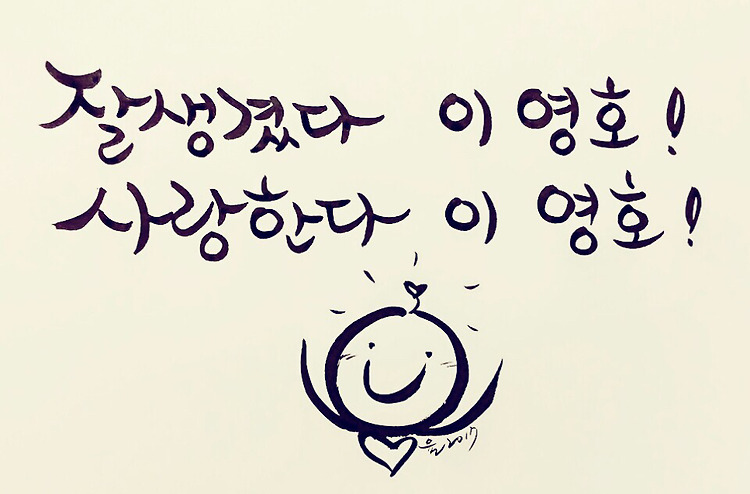 잘생겼다 이영호!
사랑한다 이영호!
2017